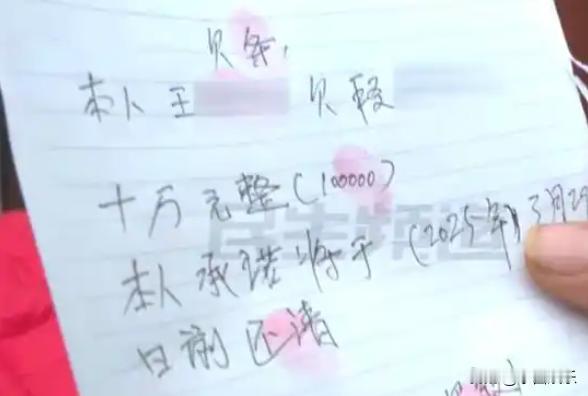 贝条,
本人王 贝段
十万元整(100000)
民生频道
本人承诺将于(2025年3月2
日前还清